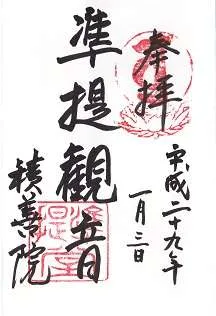 奉拝
平成二十九年
一月三日
準提観音
積善院